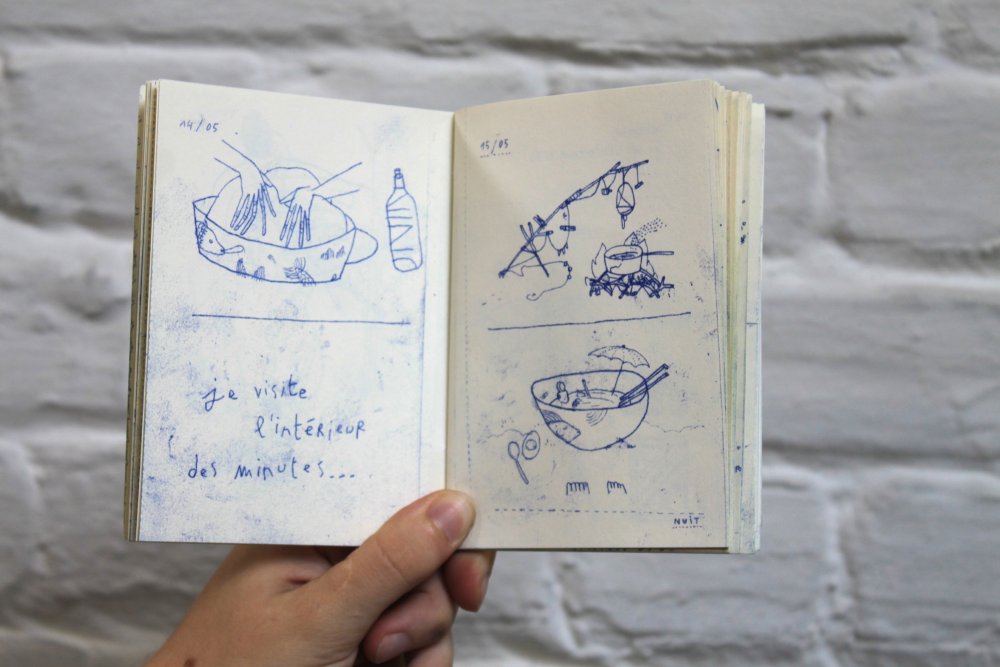 14/05
je visite
l'intérieur
des minutes...
15/05
NUIT